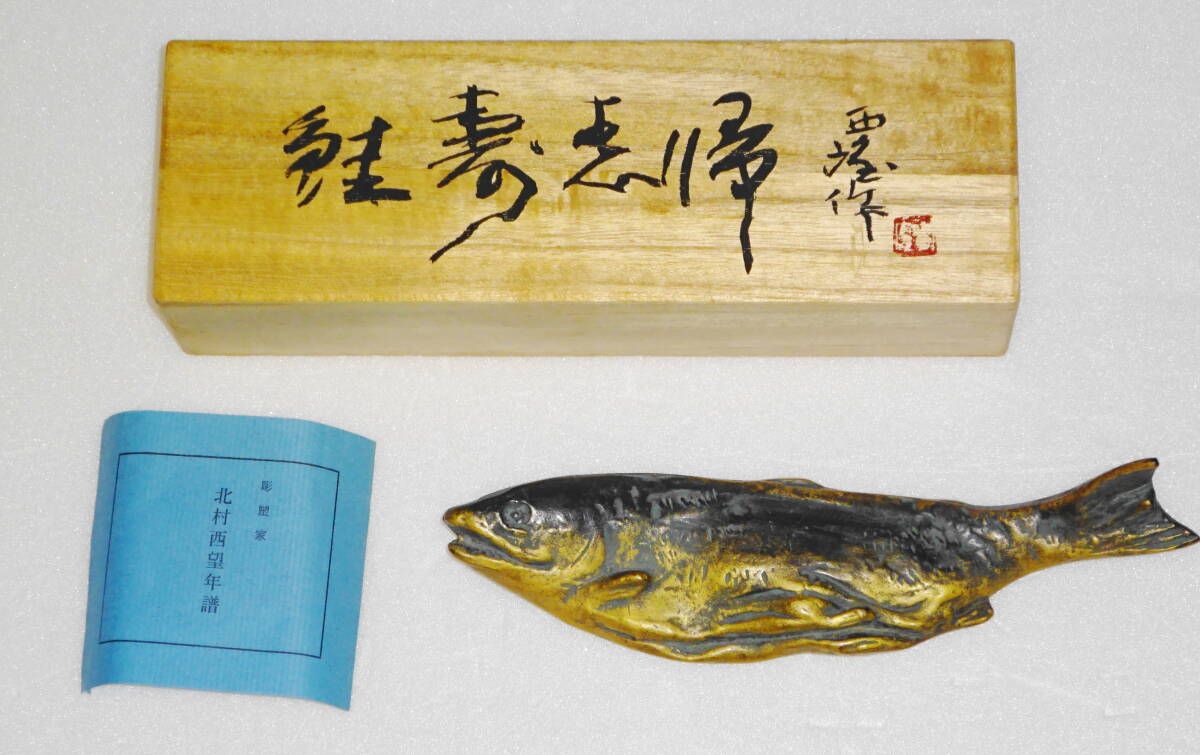 鮭壽志帰
西望作
彫塑家
北村西望年譜